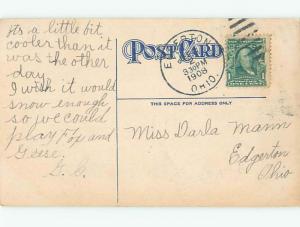 Its a little bit
cooler than it
was the other
day.
I wish it would
snow enough
so we could
play Fox and
Geese.
G. C.
POST CARD
EDGERTON
830PM
1908
OHIO.
THIS SPACE FOR ADDRESS ONLY
Miss Darla Mann
Edgerton
Ohio